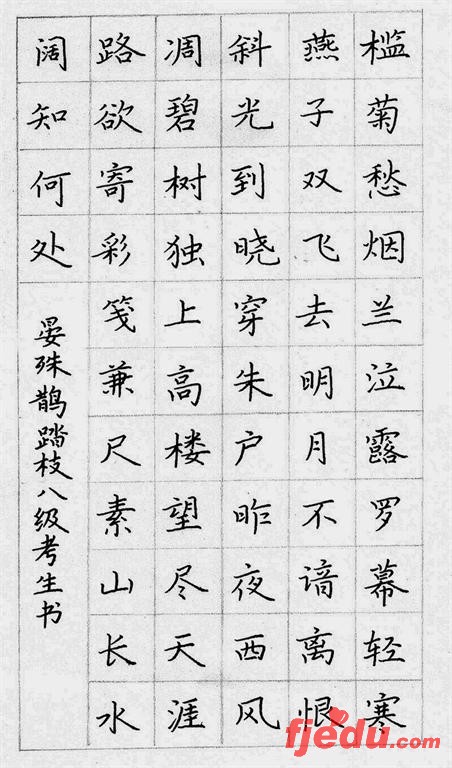 槛菊愁烟兰泣露罗幕轻寒
燕子双飞去明月不谙离恨
斜光到晓穿朱户昨夜西风
凋碧树独上高楼望尽天涯
路欲寄彩笺兼尺素山长水
阔知何处
晏殊鹊踏枝八级考生书
fjedu.com